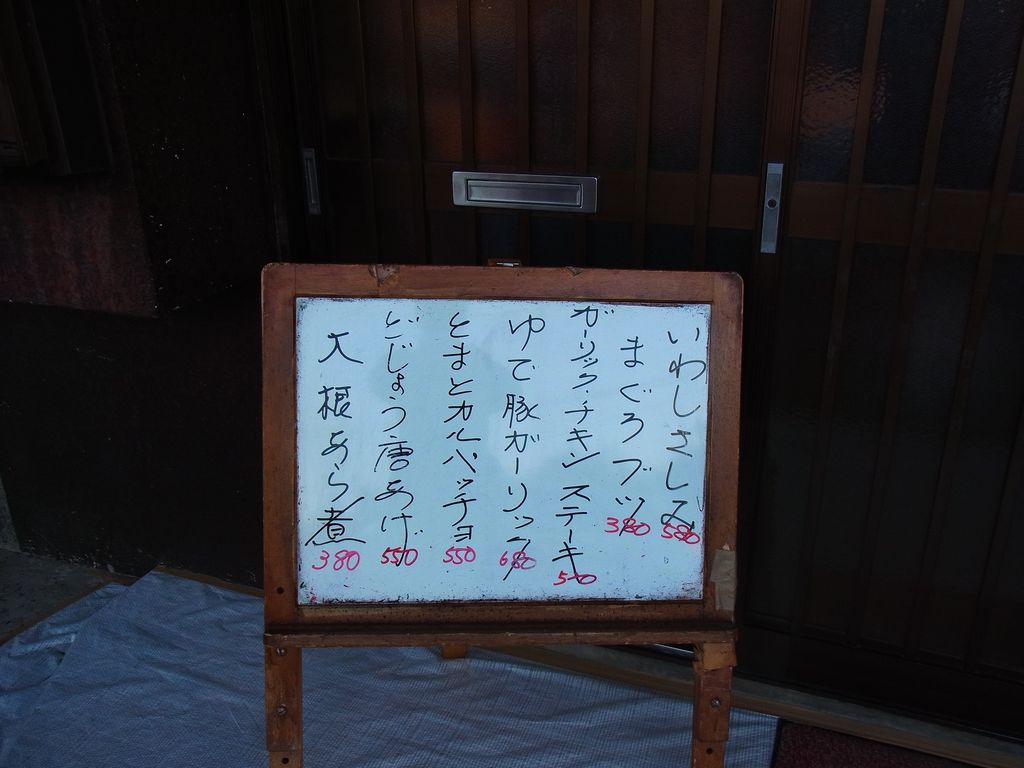 いわしさしみ 580
まぐろブツ 380
ガーリック・チキンステーキ
ゆで豚ガーリック 680
とまとカルパッチョ 550
どじょう唐あげ 550
大根あら煮 380